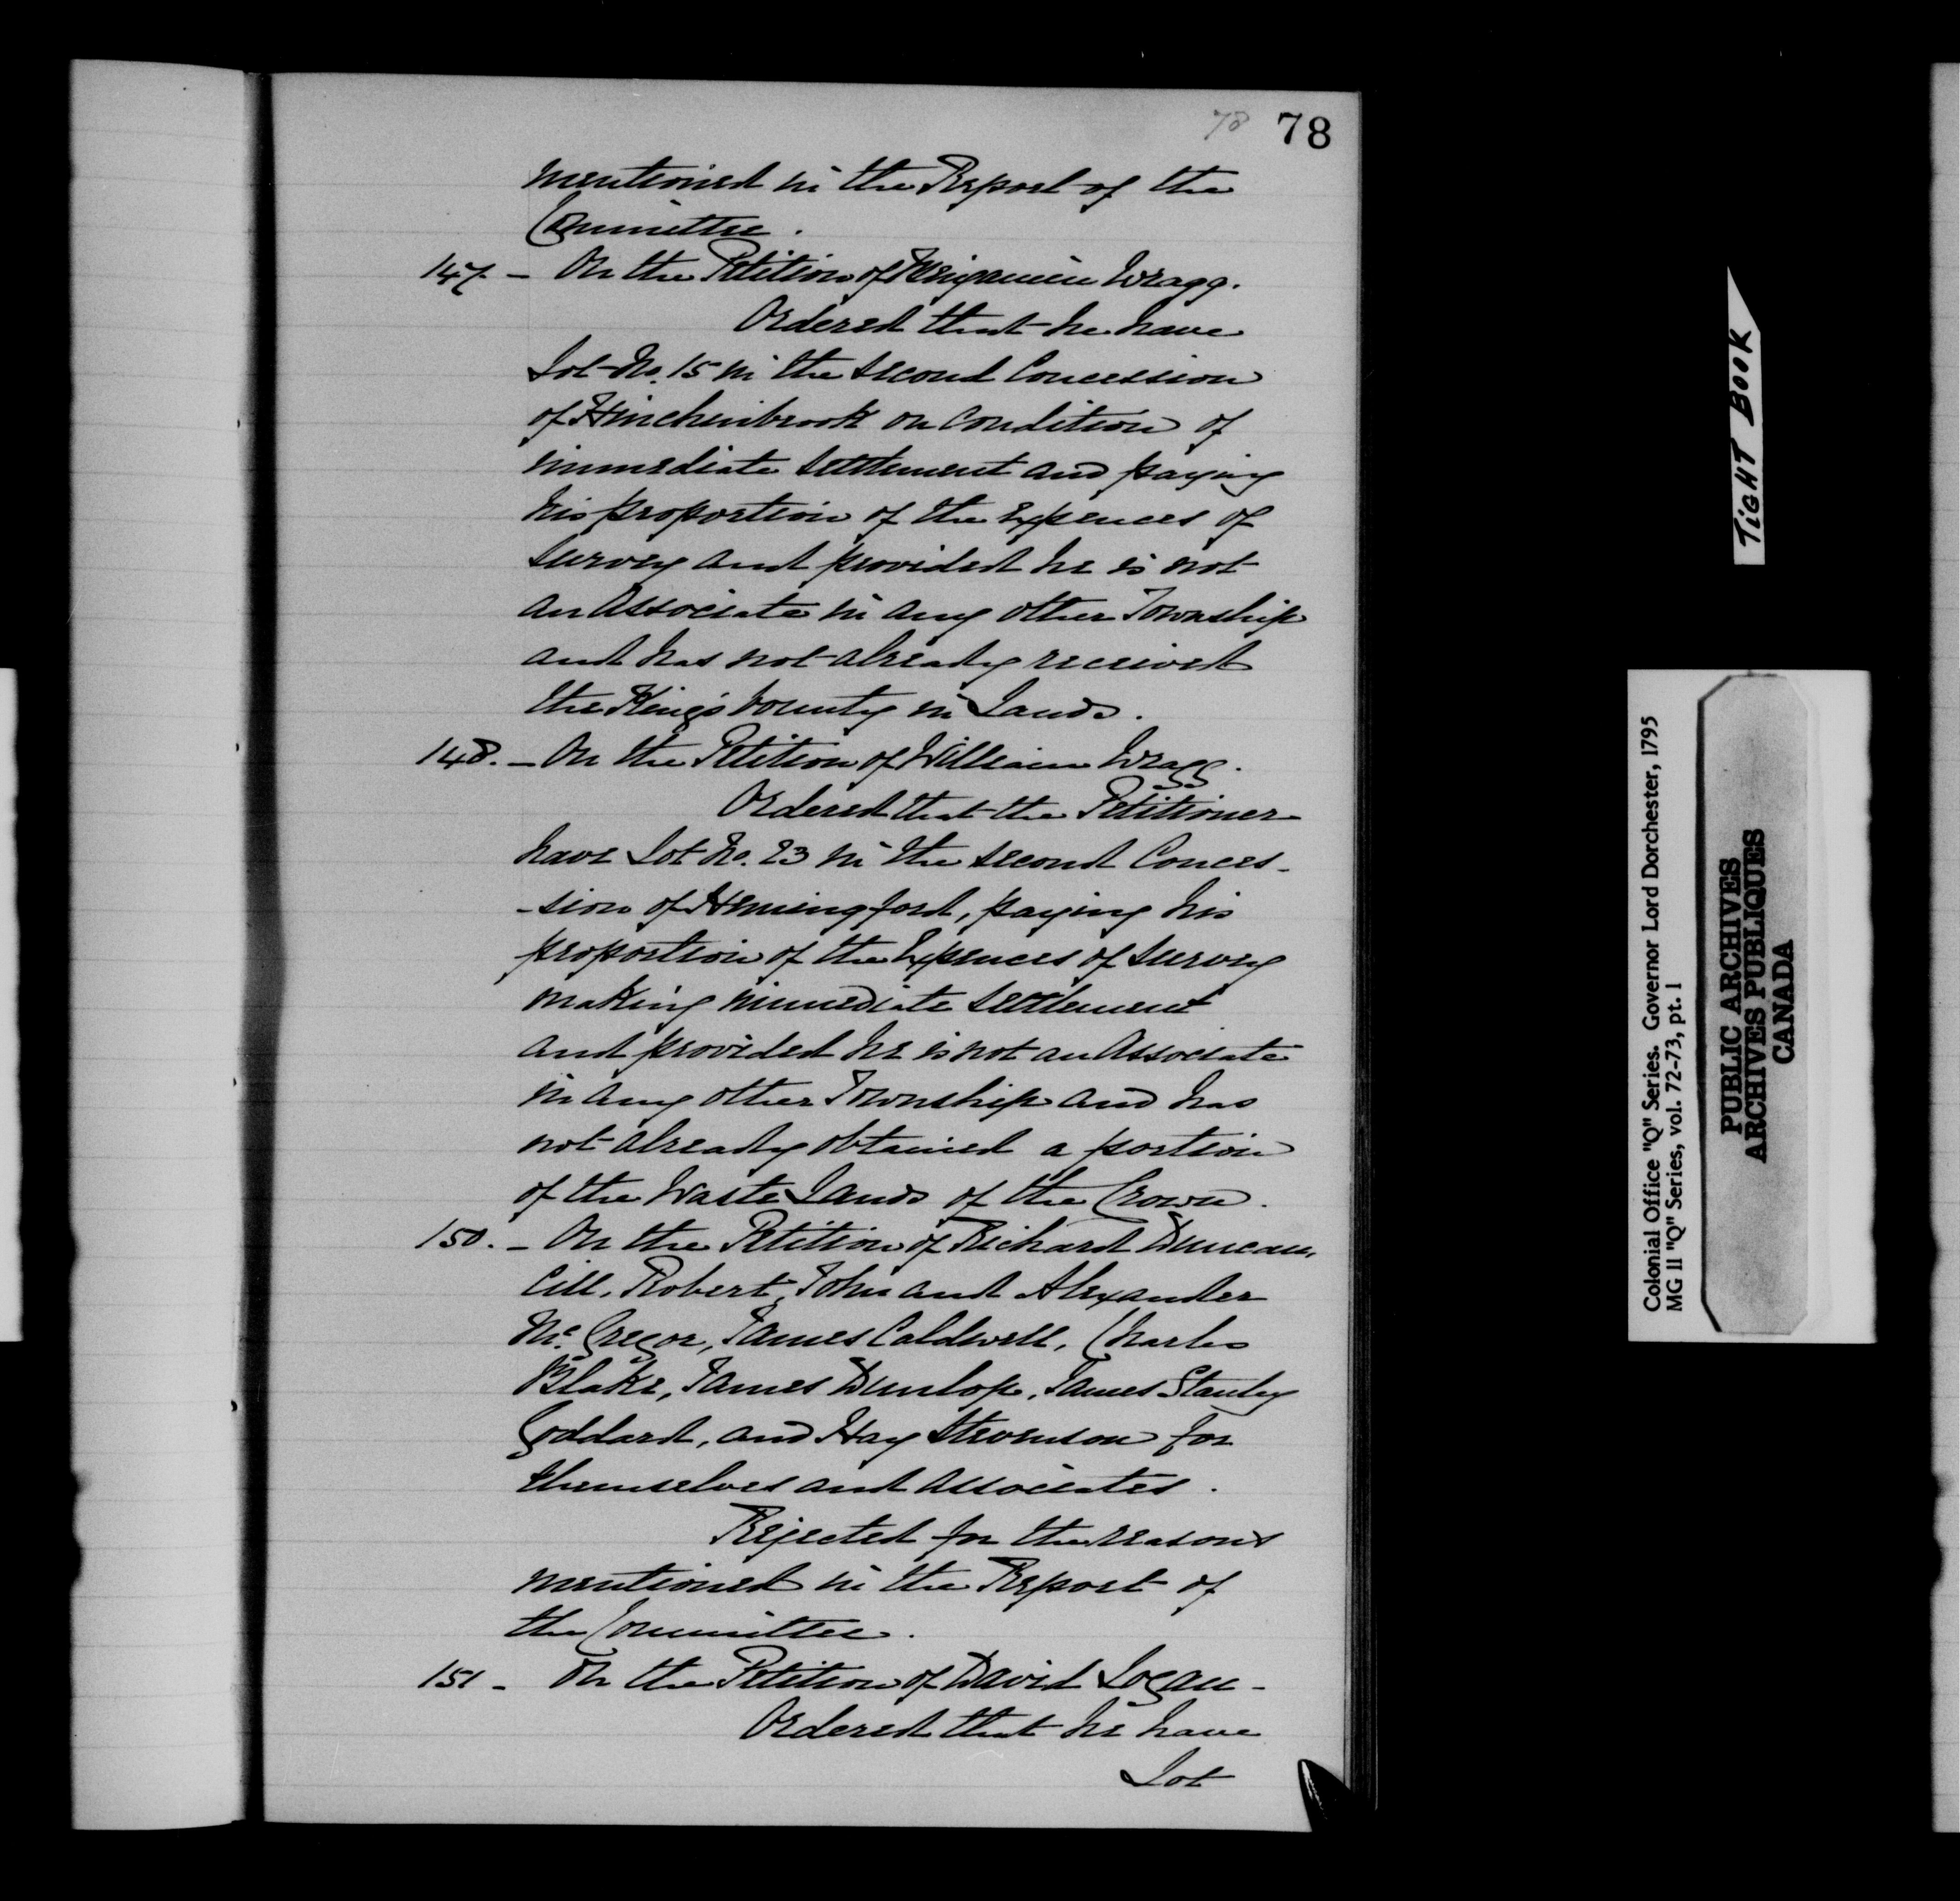 78 78
mentioned in the Report of the
Committee.
147. – On the Petition of Benjamin Wragg.
Ordered that he have
Lot No. 15 in the second Concession
of Hinchinbrook on condition of
immediate settlement and paying
his proportion of the Expences of
survey and provided he is not
an Associate in any other Township
and has not already received
the King's bounty in Lands.
148. – On the Petition of William Wragg.
Ordered that the Petitioner
have Lot No. 23 in the second Conces-
-sion of Hemingford, paying his
proportion of the Expences of survey
making immediate settlement
and provided he is not an Associate
in any other Township and has
not already obtained a portion
of the Waste Lands of the Crown.
150. – On the Petition of Richard Duncan,
Robert, John and Alexander
McGregor, James Caldwell, Charles
Blake, James Dunlop, James Stanley
Goddard, and Hay Stevenson for
themselves and associates.
Rejected for the reasons
mentioned in the Report of
the Committee.
151 – On the Petition of David Logan –
Ordered that he have
Lot
TIGHT BOOK
Colonial Office "Q" Series. Governor Lord Dorchester, 1795
MG 11 "Q" Series, vol. 72-73, pt. 1
PUBLIC ARCHIVES
ARCHIVES PUBLIQUES
CANADA